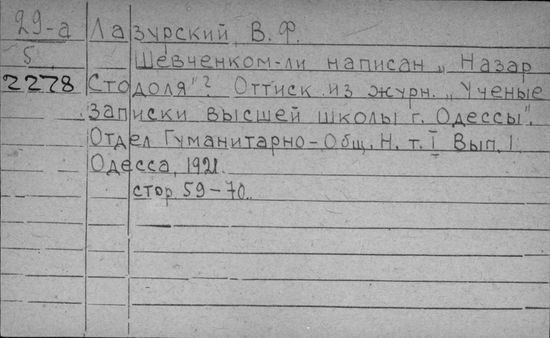 29-а Лазурский, В. Ф.
5 Шевченком-ли написан „Назар
2278 Стодоля"? Оттиск из журн. „Ученые
Записки высшей школы г. Одессы".
Отдел Гуманитарно-Общ. Н. т. I Вып. 1
Одесса, 1921
стор 59-70.